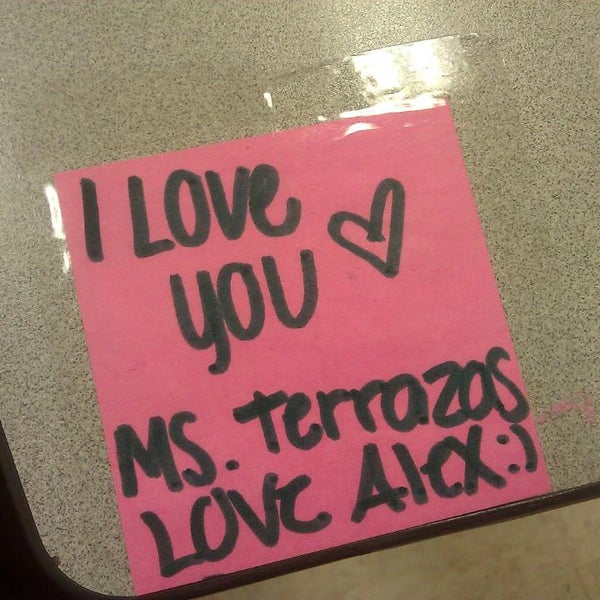 I LOVe
YOU
MS. Terrazas
LOVE Alex:)